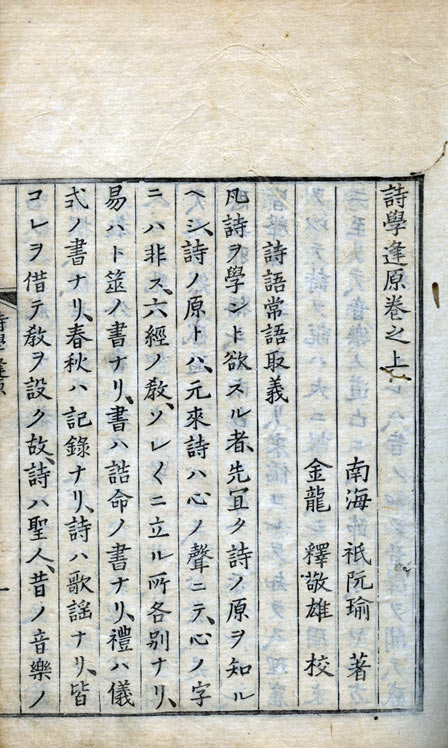 詩學逢原卷之上
南海 祇阮瑜 著
金龍 釋敬雄 校
詩語常語取義
凡詩ヲ學ント欲スル者、先冝ク詩ノ原ヲ知ル
ヘシ、詩ノ原トハ、元來詩ハ心ノ聲ニテ、心ノ字
ニハ非ス、六經ノ教、ソレ〱ニ立ル所各別ナリ、
易ハ卜筮ノ書ナリ、書ハ誥命ノ書ナリ、禮ハ儀
式ノ書ナリ、春秋ハ記錄ナリ、詩ハ歌謡ナリ、皆
コレヲ借テ教ヲ設ク故、詩ハ聖人、昔ノ音樂ノ